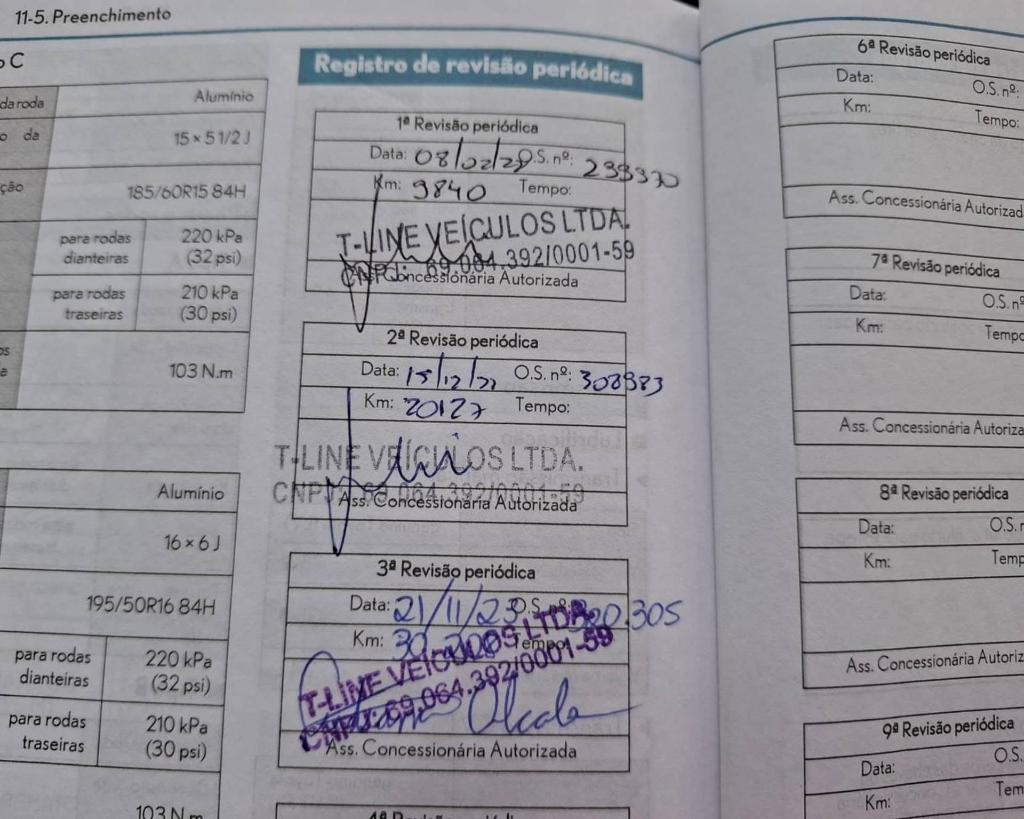 11-5. Preenchimento
o C
da roda
Alumínio
o da
15 x 5 1/2 J
ção
185/60R15 84H
para rodas dianteiras
220 kPa
(32 psi)
para rodas traseiras
210 kPa
(30 psi)
103 N.m
Alumínio
16 x 6 J
195/50R16 84H
para rodas dianteiras
220 kPa
(32 psi)
para rodas traseiras
210 kPa
(30 psi)
103 N.m
Registro de revisão periódica
1ª Revisão periódica
Data: 08/02/ O.S. nº:
Km: 9840 Tempo:
T-LINE VEÍCULOS LTDA.
CNPJ: 69.064.392/0001-59
Concessionária Autorizada
2ª Revisão periódica
Data: 15/12/22 O.S. nº: 308983
Km: 20127 Tempo:
T-LINE VEÍCULOS LTDA.
CNPJ: 69.064.392/0001-59
Ass. Concessionária Autorizada
3ª Revisão periódica
Data: 21/11/23 O.S. nº: 320.305
Km: Tempo:
T-LINE VEÍCULOS LTDA.
CNPJ: 69.064.392/0001-59
Ass. Concessionária Autorizada
4ª Revisão periódica
6ª Revisão periódica
Data: O.S. nº:
Km: Tempo:
Ass. Concessionária Autorizad
7ª Revisão periódica
Data: O.S. nº
Km: Tempo
Ass. Concessionária Autoriza
8ª Revisão periódica
Data: O.S. n
Km: Temp
Ass. Concessionária Autoriz
9ª Revisão periódica
Data: O.S.
Km: Tem